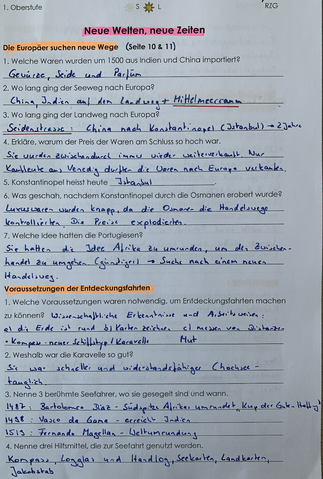 1. Oberstufe S L RZG
Neue Welten, neue Zeiten
Die Europäer suchen neue Wege (Seite 10 & 11)
1. Welche Waren wurden um 1500 aus Indien und China importiert?
Gewürze, Seide und Parfüm
2. Wo lang ging der Seeweg nach Europa?
China, Indien auf dem Landweg + Mittelmeerraum
3. Wo lang ging der Landweg nach Europa?
Seidenstrasse: China nach Konstantinopel (Istanbul) → 2 Jahre
4. Erkläre, warum der Preis der Waren am Schluss so hoch war.
Sie wurden zwischendurch immer wieder weiterverkauft. Nur
Kaufleute aus Venedig durften die Waren nach Europa verkaufen.
5. Konstantinopel heisst heute Istanbul
6. Was geschah, nachdem Konstantinopel durch die Osmanen erobert wurde?
Luxuswaren wurden knapp, da die Osmanen die Handelswege
kontrollierten. Die Preise explodierten.
7. Welche Idee hatten die Portugiesen?
Sie hatten die Idee Afrika zu umrunden, um den Zwischen-
handel zu umgehen (günstiger) → Suche nach einem neuen
Handelsweg.
Voraussetzungen der Entdeckungsfahrten
1. Welche Voraussetzungen waren notwendig, um Entdeckungsfahrten machen
zu können? Wissenschaftliche Erkenntnisse und Arbeitsweisen:
a) die Erde ist rund b) Karten zeichnen c) messen von Distanzen
- Kompass - neuer Schiffstyp / Karavelle Mut
2. Weshalb war die Karavelle so gut?
Sie war schneller und widerstandsfähiger (hochsee-
tauglich.
3. Nenne 3 berühmte Seefahrer, wo sie gesegelt sind und wann.
1487: Bartolomeo Diaz - Südspitze Afrikas umrundet, Kap der Guten Hoffnung
1498: Vasco da Gama - erreicht Indien
1519: Fernando Magellan - Weltumrundung
4. Nenne drei Hilfsmittel, die zur Seefahrt genutzt werden.
Kompass, Logglas und Handlog, Seekarten, Landkarten,
Jakobstab